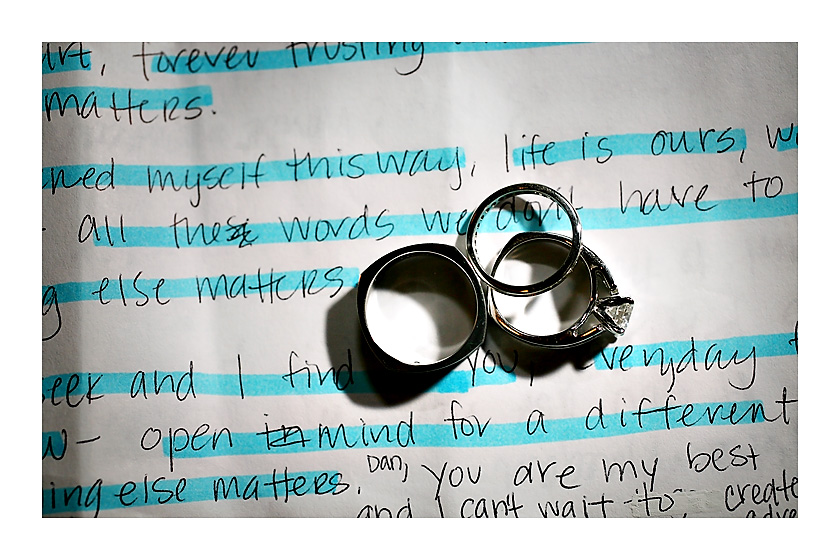 forever trusting
matters.
ned myself this way, life is ours, w
all these words we don't have to
g else matters
eek and I find you, everyday
w- open mind for a different
ing else matters.
Dan, you are my best
and I can't wait to create